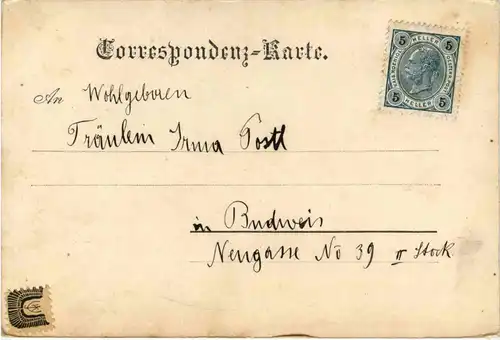 Correspondenz-Karte.
5 HELLER 5
5 HELLER 5
An Wohlgeboren
Fräulein Irma Postl
in Budweis
Neugasse No 39 II Stock